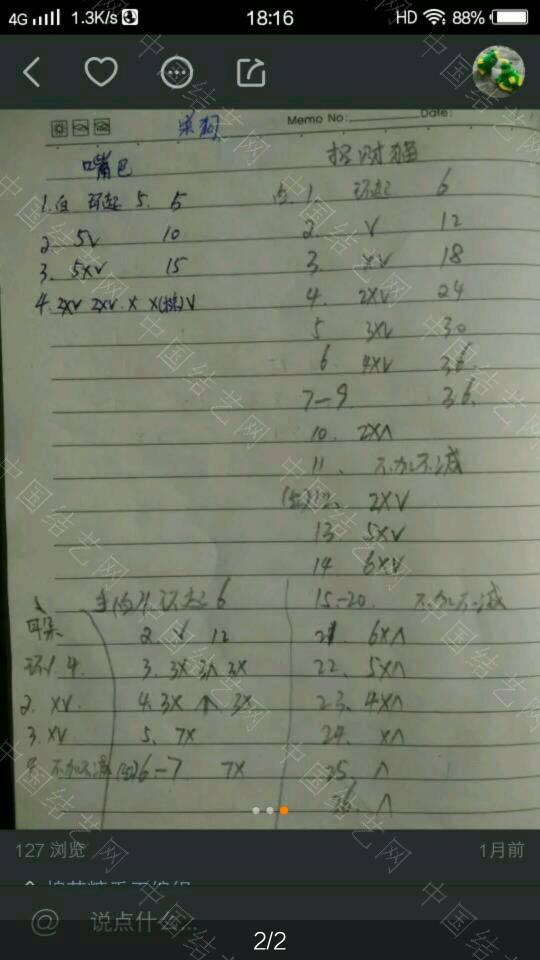 4G 1.3K/s 18:16 HD 88%
Memo No: Date:
嘴巴
1. 白 环起 5. 5
2. 5V 10
3. 5XV 15
4. 2XV 2XV X X
招财猫
1. 环起 6
2. V 12
3. XV 18
4. 2XV 24
5 3XV 30
6. 4XV 36
7-9 36.
10. 2XΛ
11、 不加不减
12、 2XV
13. 5XV
14 6XV
15-20. 不加不减
21 6XΛ
22. 5XΛ
23、 4XΛ
24. XΛ
25, Λ
26. Λ
环起 6
2. V 12
3. 3X 3Λ 3X
4. 3X 3X
5、 7X
6-7 7X
耳朵
环1. 4.
2. XV.
3. XV
不加不减
127 浏览 1月前
@ 说点什么...
2/2
中国结艺网